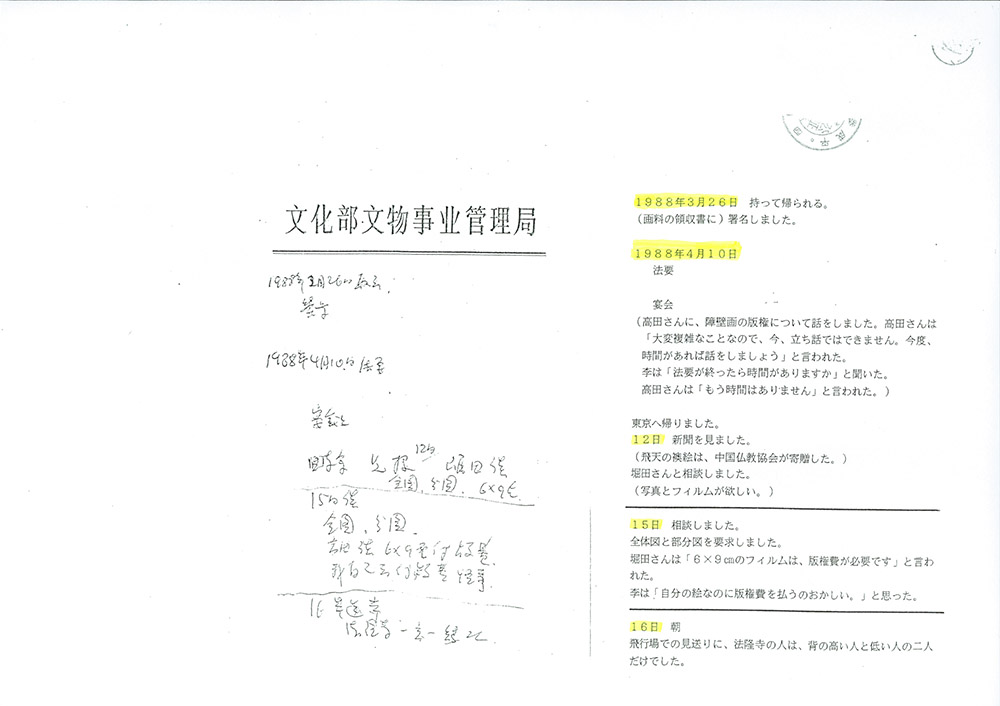 文化部文物事业管理局
1988年3月26日
签字
1988年4月10日 法要
宴会上
12日
全图、分图、6×9
15日谈
全图、分图、
16
1988年3月26日　持って帰られる。
（画科の領収書に）署名しました。
1988年4月10日
法要
宴会
（高田さんに、障壁画の版権について話をしました。高田さんは
「大変複雑なことなので、今、立ち話ではできません。今度、
時間があれば話をしましょう」と言われた。
李は「法要が終ったら時間がありますか」と聞いた。
高田さんは「もう時間はありません」と言われた。）
東京へ帰りました。
12日　新聞を見ました。
（飛天の襖絵は、中国仏教協会が寄贈した。）
堀田さんと相談しました。
（写真とフィルムが欲しい。）
15日　相談しました。
全体図と部分図を要求しました。
堀田さんは「6×9㎝のフィルムは、版権費が必要です」と言わ
れた。
李は「自分の絵なのに版権費を払うのおかしい。」と思った。
16日　朝
飛行場での見送りに、法隆寺の人は、背の高い人と低い人の二人
だけでした。